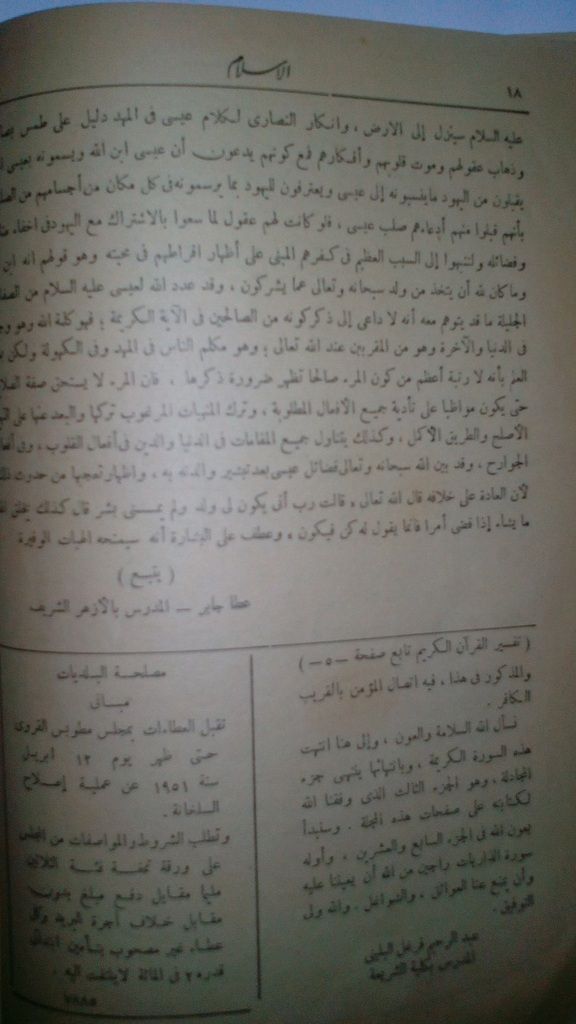 ١٨
الاسلام
عليه السلام سينزل إلى الارض ، وانكار النصارى لكلام عيسى فى المهد دليل على طمس
وذهاب عقولهم وموت قلوبهم وأفكارهم فمع كونهم يدعون أن عيسى ابن الله ويسمونه
يقبلون من اليهود ماينسبونه إلى عيسى ويعترفون لليهود بما يرسمونه فى كل مكان من أجسامهم من
بأنهم قبلوا منهم أدعاءهم صلب عيسى ، فلو كانت لهم عقول لما سعوا بالاشتراك مع اليهود فى اخفاء
وفضائله ولتنبهوا إلى السبب العظيم فى كفرهم المبنى على أظهار افراطهم فى محبته وهو قولهم انه ابن
وما كان لله أن يتخذ من ولد سبحانه وتعالى عما يشركون ، وقد عدد الله لعيسى عليه السلام من
الجليلة ما قد يتوهم معه أنه لا داعى إلى ذكر كونه من الصالحين فى الآية الكريمة ؛ فهو كلمة الله وهو
فى الدنيا والآخرة وهو من المقربين عند الله تعالى ؛ وهو مكلم الناس فى المهد وفى الكهولة ولكن
العلم بأنه لا رتبة أعظم من كون المرء صالحا تظهر ضرورة ذكرها . فان المرء لا يستحق صفة
حتى يكون مواظبا على تأدية جميع الافعال المطلوبة ، وترك المنهيات المرغوب تركها والبعد عنها على
الاصلح والطريق الاكمل ، وكذلك يتناول جميع المقامات فى الدنيا والدين فى أفعال القلوب ، وفى
الجوارح ، وقد بين الله سبحانه وتعالى فضائل عيسى بعد تبشير والدته به ، واظهار تعجبها من حدوث
لأن العادة على خلافه قال الله تعالى « قالت رب أنى يكون لى ولد ولم يمسسنى بشر قال كذلك يخلق
ما يشاء إذا قضى أمرا فانما يقول له كن فيكون » وعطف على البشارة أنه سيمنحه الهبات الوفيرة
( يتبع )
عطا جابر — المدرس بالأزهر الشريف
( تفسير القرآن الكريم تابع صفحة — ٥ — )
والمذكور فى هذا ، فيه اتصال المؤمن بالقريب
الكافر .
نسأل الله السلامة والعون ، وإلى هنا انتهت
هذه السورة الكريمة ، وبانتهائها ينتهى جزء
المجادلة ، وهو الجزء الثالث الذى وفقنا الله
لكتابته على صفحات هذه المجلة . وسنبدأ
بعون الله فى الجزء السابع والعشرين ، وأوله
سورة الذاريات راجين من الله أن يعيننا عليه
وأن يمنع عنا العوائق ، والشواغل . والله ولى
التوفيق .
عبد الرحيم فرغل البلينى
المدرس بكلية الشريعة
مصلحة البلديات
مبانى
تقبل العطاءات بمجلس مطوبس القروى
حتى ظهر يوم ١٢ ابريل
سنة ١٩٥١ عن عملية إصلاح
السلخانة .
وتطلب الشروط والمواصفات من المجلس
على ورقة تمغة فئة الثلاثين
مليما مقابل دفع مبلغ
مقابل خلاف أجرة البريد وكل
عطاء غير مصحوب بتأمين ابتدائى
قدره ٢ فى المائة لا يلتفت اليه .